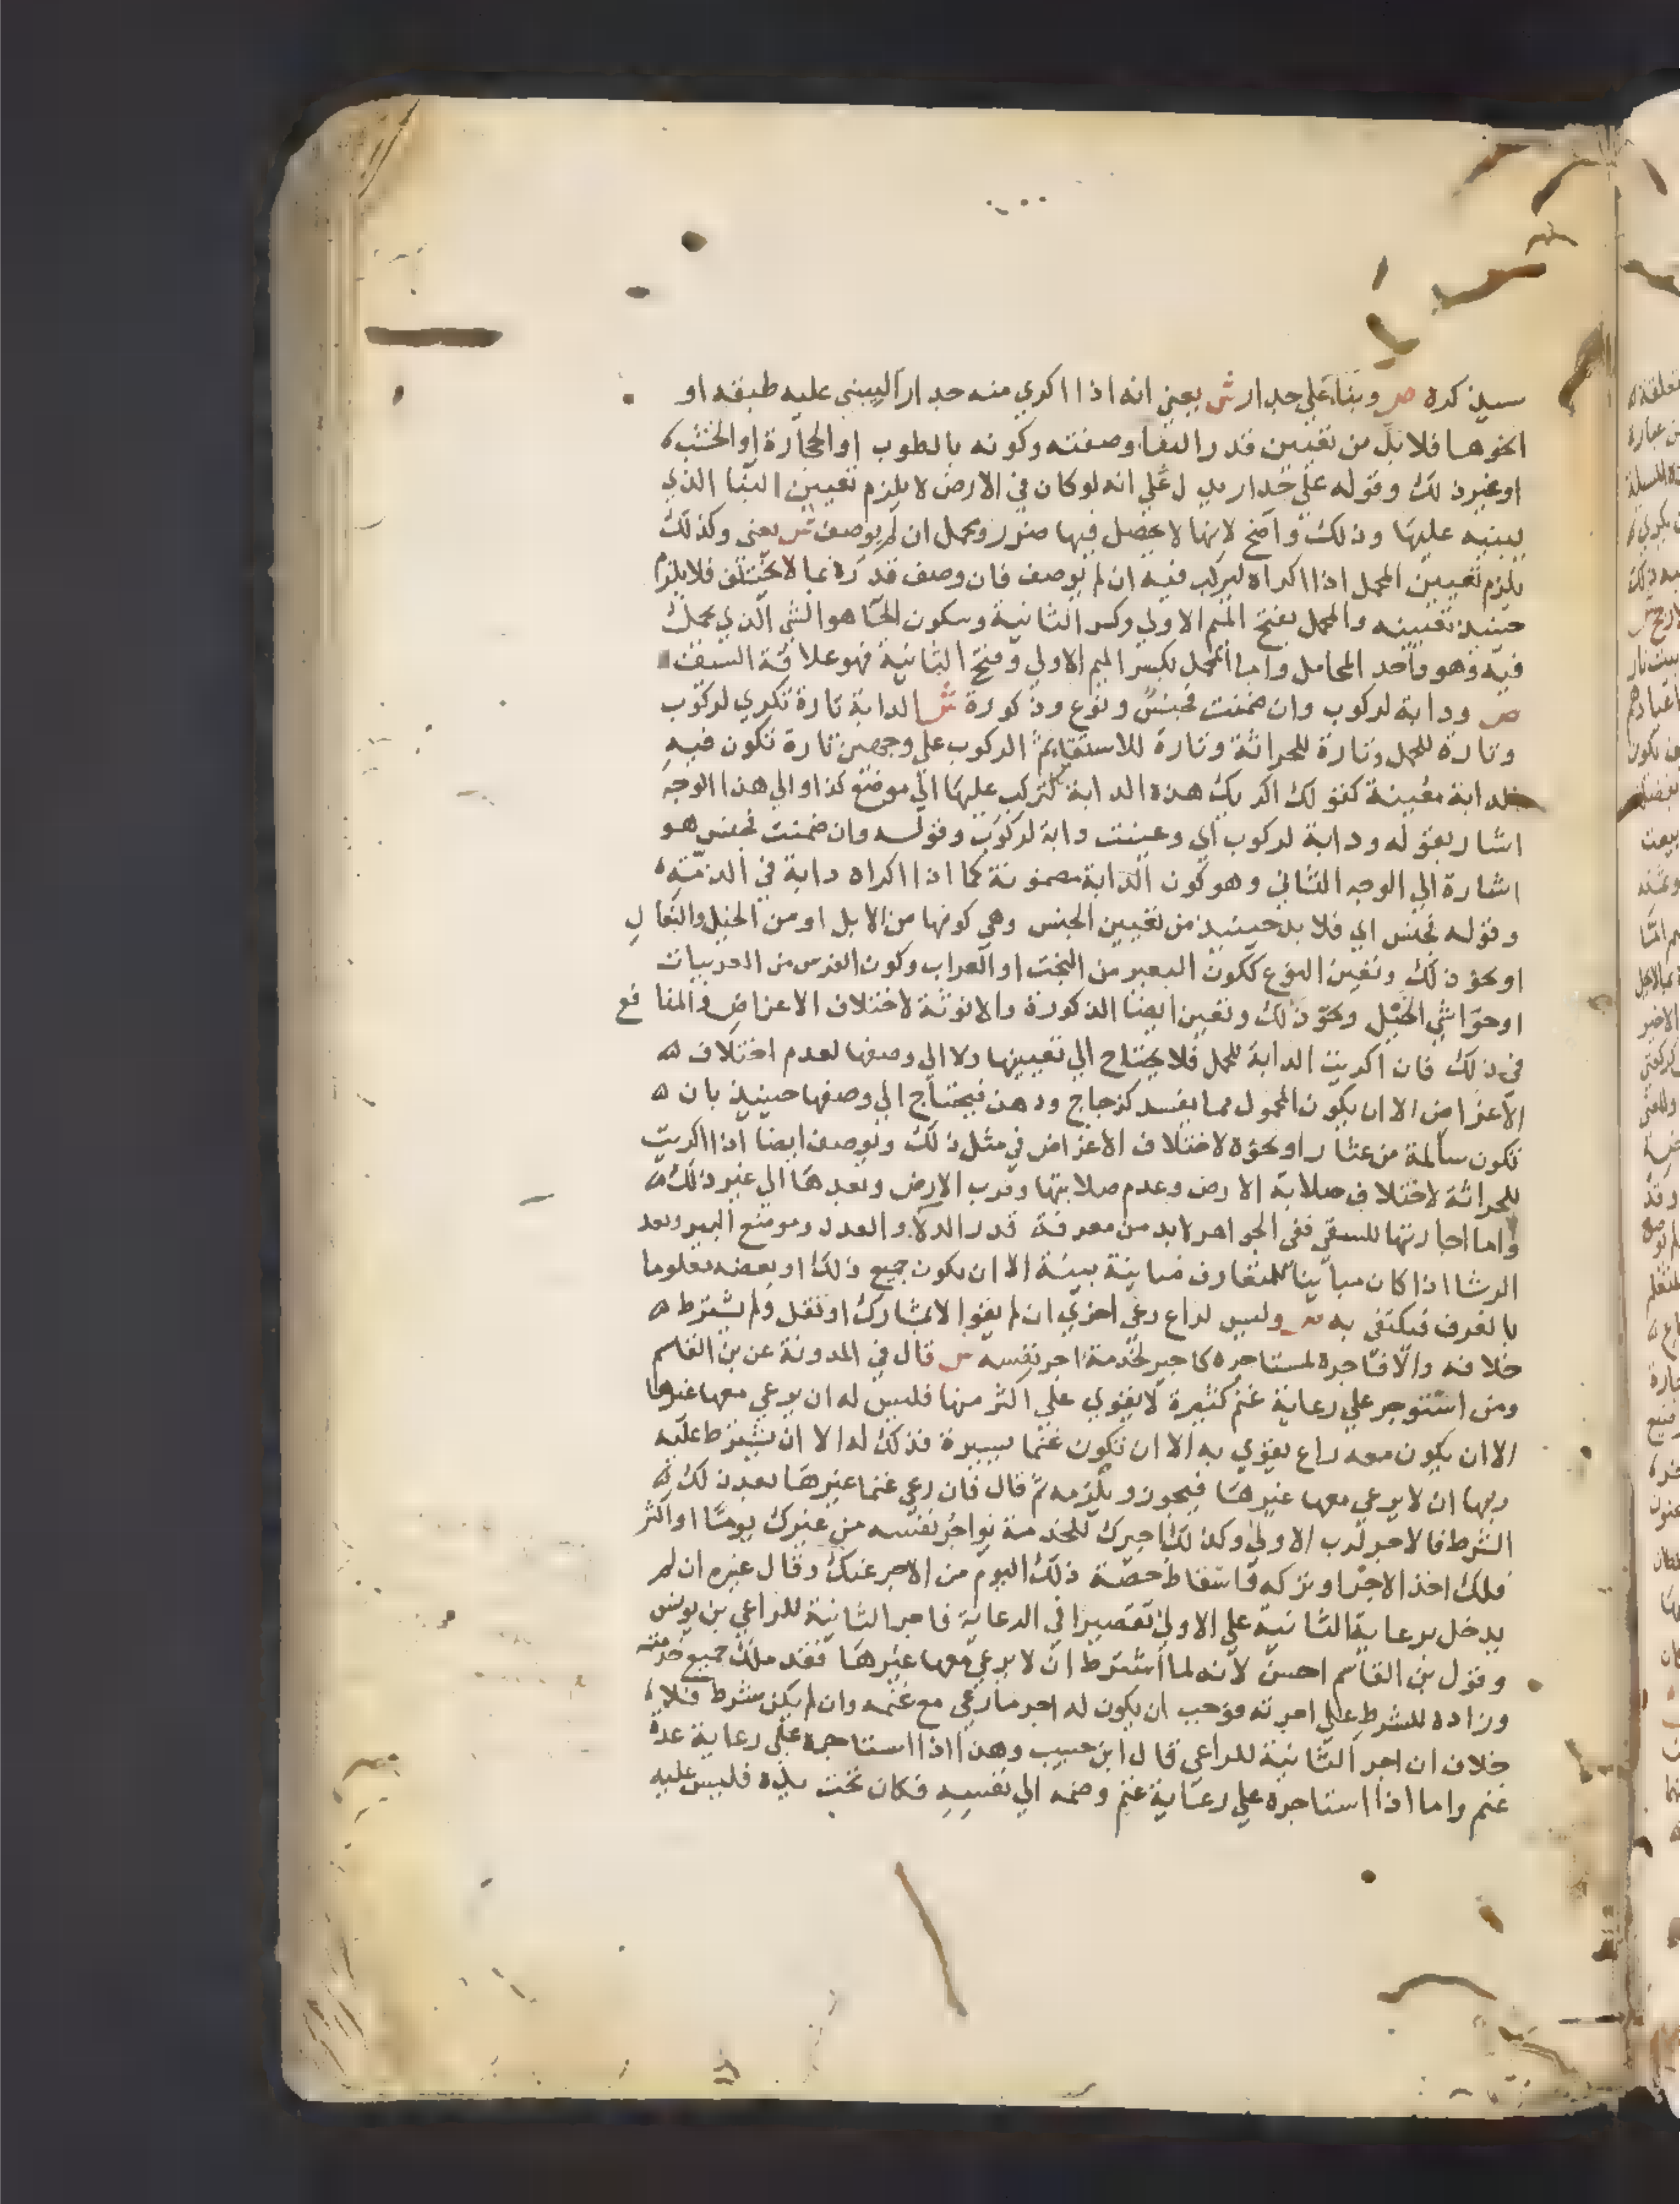 سيذكره ص وبناء علي جدار ش يعني انه اذا اكري منه جدارا ليبني عليه طبقه او
نحوها فلا بد من تعيين قدر البنا وصفته وكونه بالطوب او الحجارة او الخشب
او غير ذلك وقوله علي جدار يدل علي انه لو كان في الارض لا يلزم تعيين البنا الذي
يبنيه عليها وذلك واضح لانها لا يحصل فيها ضرر ومحمل ان لم يوصف ش يعني وكذلك
يلزم تعيين المحمل اذا اكراه ليركب فيه ان لم يوصف فان وصف قدره بما لا يختلف فلا يلزم
حينيذ تعيينه والمحمل بفتح الميم الاولي وكسر الثانية وسكون الحا هو الشي الذي يحمل
فيه وهو واحد المحامل واما المحمل بكسر الميم الاولي وفتح الثانية فهو علاقة السيف
ص ودابة لركوب وان ضمنت فجنس ونوع وذكورة ش الدابة تارة تكري لركوب
وتارة للحمل وتارة للحراثة وتارة للاستقا ثم الركوب علي وجهين تارة تكون فيه
الدابة معينة كقولك اكريك هذه الدابة لتركب عليها الي موضع كذا والي هذا الوجه
اشار بقوله ودابة لركوب اي وعينت دابة لركوب وقوله وان ضمنت فجنس هو
اشارة الي الوجه الثاني وهو كون الدابة مضمونة كما اذا اكراه دابة في الذمة
وقوله فجنس اي فلا بد حينيذ من تعيين الجنس وهي كونها من الابل او من الخيل والبغال
او نحو ذلك وتعين النوع ككون البعير من البخت او العراب وكون الفرس من العربيات
او حواشي الخيل ونحو ذلك وتعين ايضا الذكورة والانوثة لاختلاف الاغراض والمنافع
في ذلك فان اكريت الدابة للحمل فلا يحتاج الي تعيينها ولا الي وصفها لعدم اختلاف
الاغراض الا ان يكون المحمول مما يفسد كزجاج ودهن فيحتاج الي وصفها حينيذ بان
تكون سالمة من عثار او نحوه لاختلاف الاغراض في مثل ذلك وتوصف ايضا اذا اكريت
للحراثة لاختلاف صلابة الارض وعدم صلابتها وقرب الارض وبعدها الي غير ذلك
واما اجارتها للسقي ففي الجواهر لا بد من معرفة قدر الدلا والعدد وموضع البير وبعد
الرشا اذا كان مباينا للمتعارف مباينة بينة الا ان يكون جميع ذلك او بعضه معلوما
بالعرف فيكتفي به ص وليس لراع رعي اخري ان لم يقو الا بمشارك او تقل ولم يشترط
خلافه والا فاجره لمستاجره كاجير لخدمة اجر نفسه ش قال في المدونة عن بن القاسم
ومن استوجر علي رعاية غنم كثيرة لا يقوي علي اكثر منها فليس له ان يرعي معها غيرها
الا ان يكون معه راع يقوي به الا ان تكون غنما يسيرة فذلك له الا ان يشترط عليه
ربها ان لا يرعي معها غيرها فيجوز ويلزمه ثم قال فان رعي غنما غيرها بعد ذلك
الشرط فالاجر لرب الاولي وكذلك اجيرك للخدمة يواجر نفسه من غيرك يوما او اكثر
فلك اخذ الاجر او تركه واسقاط حصة ذلك اليوم من الاجر عنك وقال غيره ان لم
يدخل برعاية الثانية علي الاولي تقصيرا في الرعاية فاجر الثانية للراعي بن يونس
وقول بن القاسم احسن لانه لما اشترط ان لا يرعي معها غيرها فقد ملك جميع خدمته
وزاده للشرط علي اجرته فوجب ان يكون له اجر ما رعي مع غنمه وان لم يكن شرط فلا
خلاف ان اجر الثانية للراعي قال ابن حبيب وهذا اذا استاجره علي رعاية عدة
غنم واما اذا استاجره علي رعاية غنم وضمه الي نفسه فكان تحت يده فليس عليه